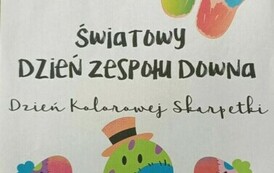 ŚWIATOWY
DZIEŃ ZESPOŁU DOWNA
Dzień Kolorowej Skarpetki